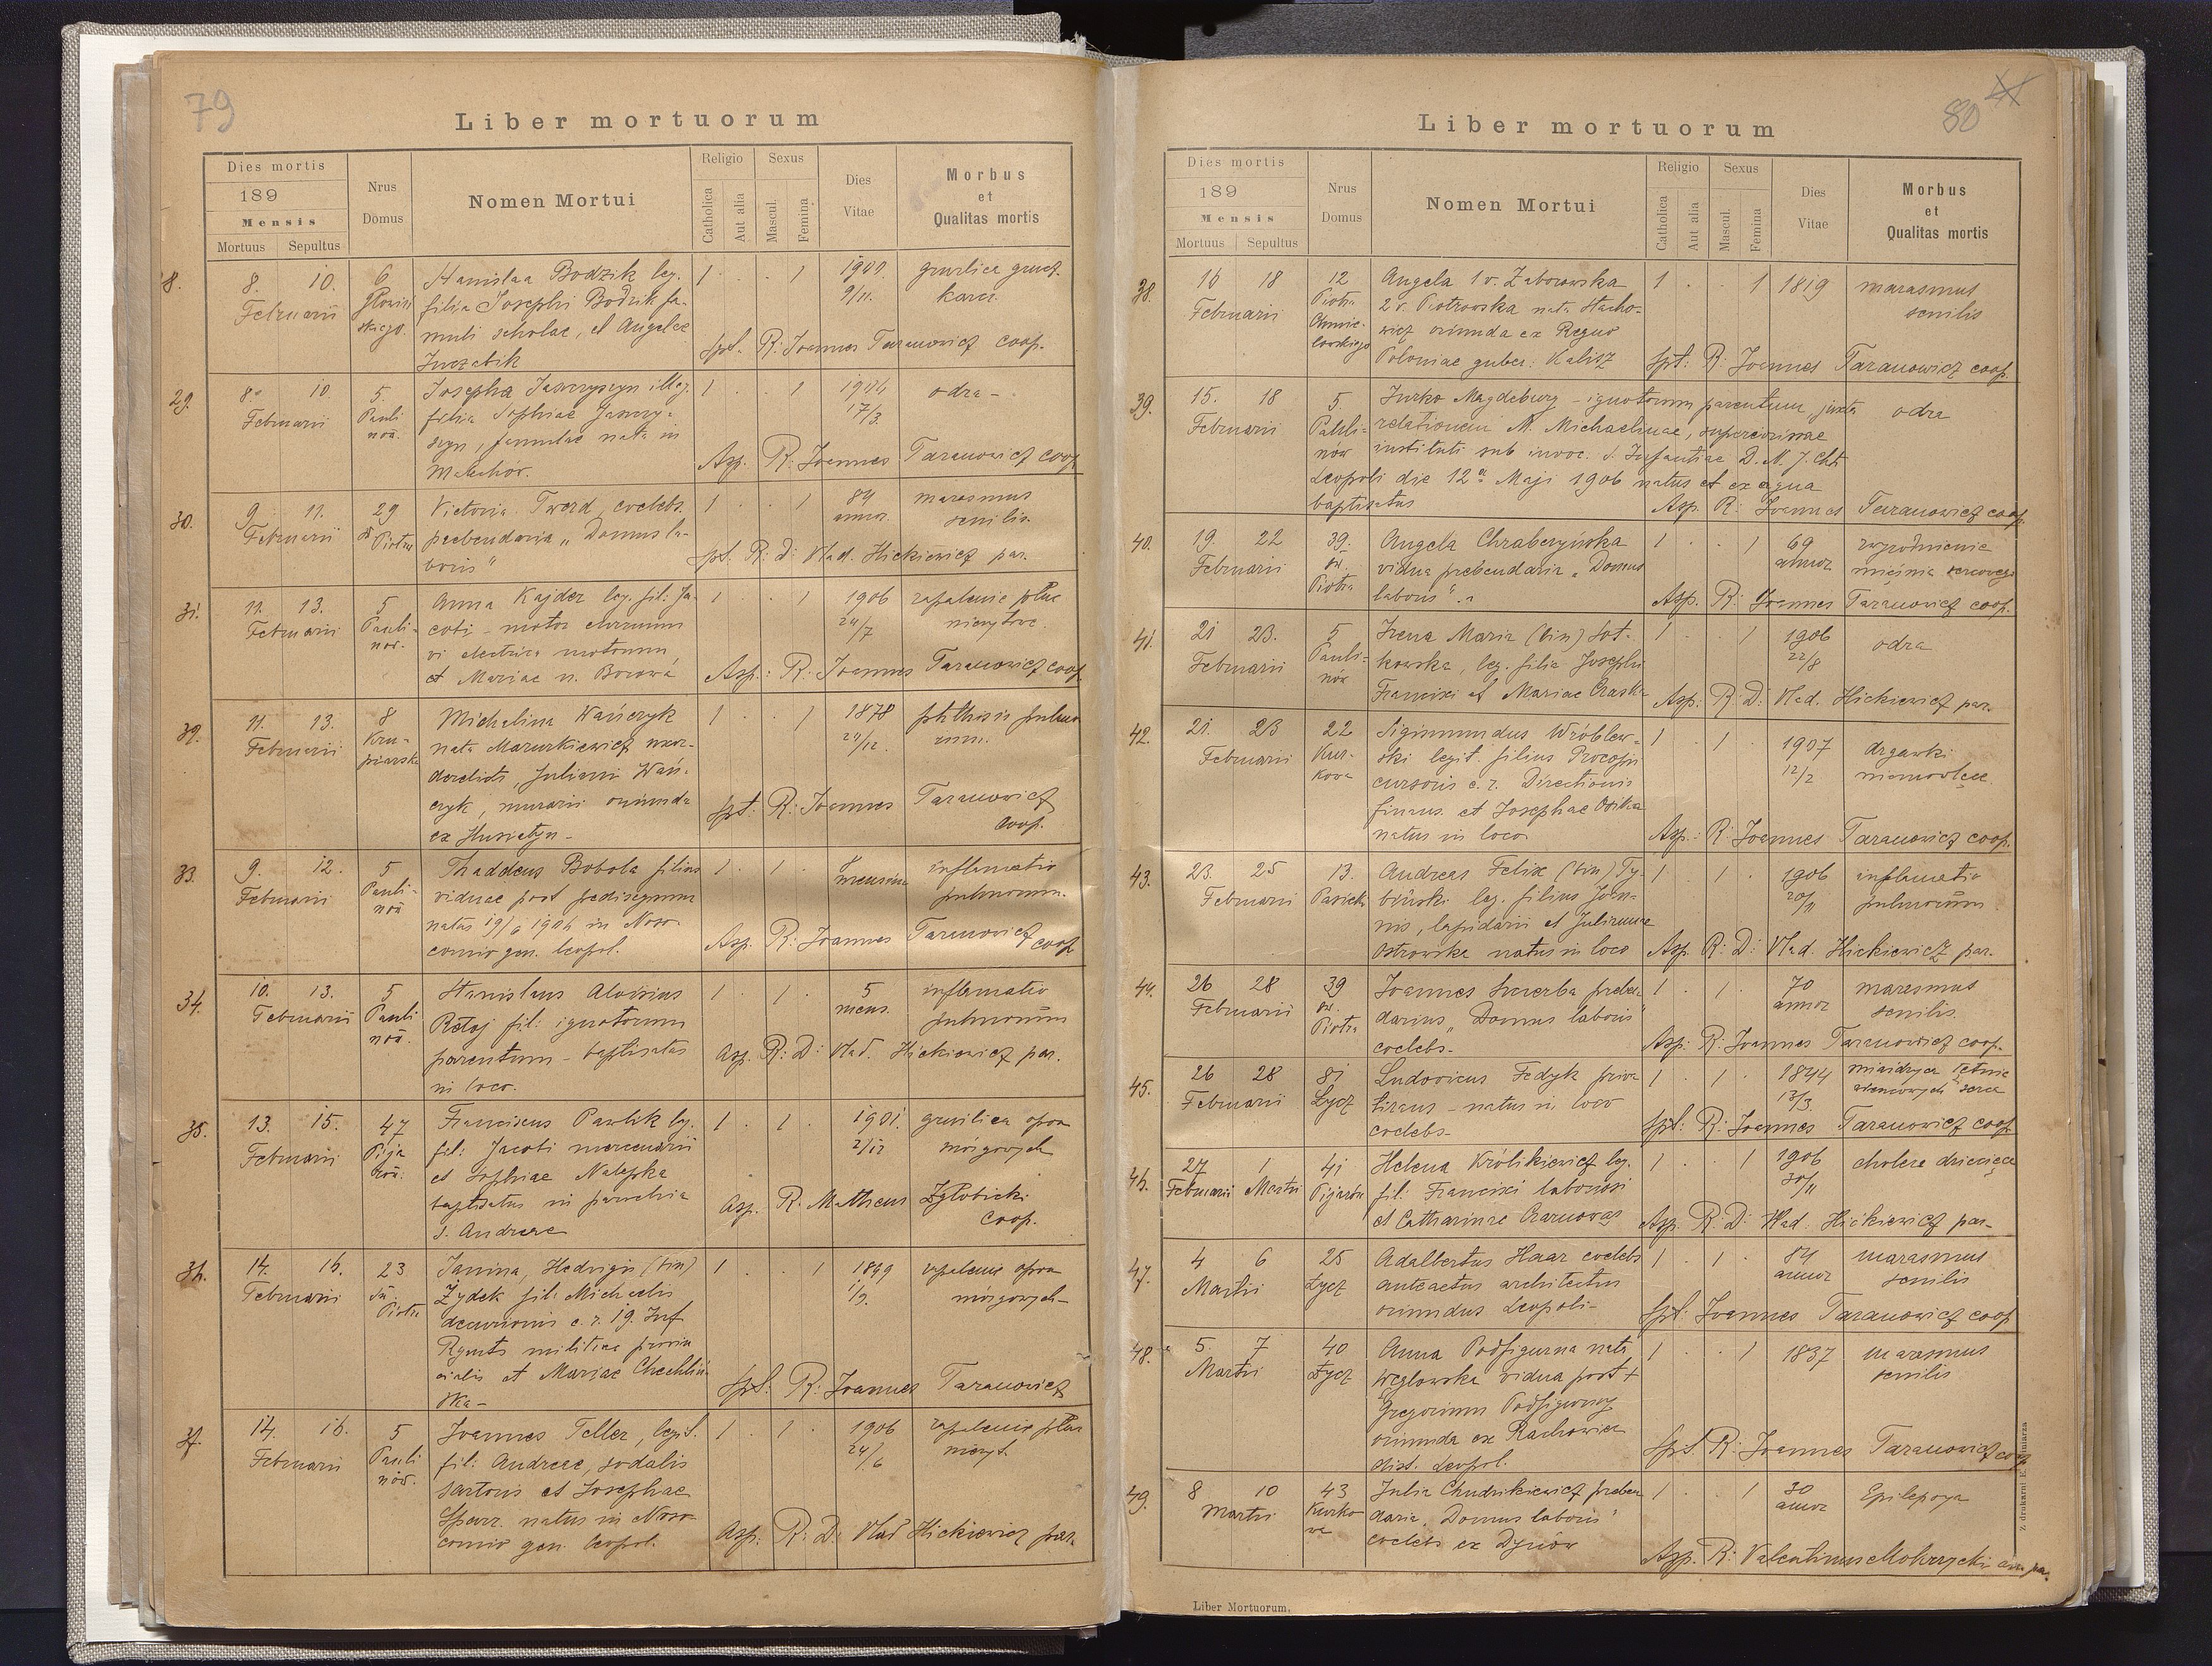 79
Liber mortuorum
Dies mortis
189
Mensis
Mortuus Sepultus
Nrus
Domus
Nomen Mortui
Religio
Catholica
Aut alia
Sexus
Mascul.
Femina
Dies
Vitae
Morbus
et
Qualitas mortis
8. 8. 10. 6 Stanislaa Bodzik leg. 1 . . 1 gruźlica grucz.
Februarii filia Josephi Bodzik fa- 9/11.
muli scholae, et Angelae
spt. R: Joannes Taranowicz coop.
29. 8. 10. 5. Josepha Jawczyszyn illeg. 1 . . 1 odra -
Februarii Pauli filia Sophiae Jawczy- 17/3.
nów. szyn, famulae nata in
Malechów. Asp. R: Joannes Taranowicz coop
30. 9. 11. 29 Victoria Twerd, coelebs 1 . . 1 84 marasmus
Februarii św Piotra prebendaria "Domus la- annor. senilis.
boris" spt. R: D: Vlad. Hickiewicz par.
31. 11. 13. 5 Anna Kajder leg. fil: Ja- 1 . . 1 1906 zapalenie płuc
Februarii Pauli- cobi - motor curruum 24/7 nieżytowe.
nów. vi electrica motorum
et Mariae n. Borowa Asp.: R: Joannes Taranowicz coop
32. 11. 13. 8 Michalina Wańczyk 1 . . 1 1878 phthisis pulmo
Februarii Kru- nata Mazurkiewicz uxor 24/12. num.
piarska derelicta, Juliani Wań-
czyk, murarii oriunda spt: R: Joannes Taranowicz
ex Husiatyn - coop.
33. 9. 12. 5 Thaddeus Bobola filius 1 . 1 . 8 inflamatio
Februarii Pauli- viduae post pedisequum mensium pulmonum.
nów natus 19/6 1906 in Noso-
comio gen. leopol. Asp. R: Joannes Taranowicz coop
34. 10. 13. 5 Stanislaus Aloisius 1 . 1 . 5 inflamatio
Februarii Pauli Rataj fil: ignotorum mens. pulmonum
nów. parentum - baptisatus Asp. R: D: Vlad. Hickiewicz par.
in loco.
35. 13. 15. 47 Franciscus Pawlik leg. 1 . 1 . 1901. gruźlica opon
Februarii Pija fil: Jacobi mercenarii 2/12 mózgowych
rów. et Sophiae Nalepka
baptisatus in parochia Asp. R: Matheus Zgłobicki
S. Andreae coop.
36. 14. 16. 23 Janina, Hedvigis (bin) 1 . . 1 zapalenie opon
Februarii św. Żydek fil: Michaelis 1/2. mózgowych -
Piotra decurionis c. r. 19. Inf
Rgmts militiae provin
cialis et Mariae Chechliń-
ska - Spt: R: Joannes Taranowicz
37. 14. 16. 5 Joannes Teller, legit. 1 . 1 . 1906 zapalenie płuc
Februarii Pauli fil: Andreae, sodalis 24/6 nieżyt.
nów. sartoris et Josephae
natus in Noso-
comio gen. leopol. Asp. R: D: Vlad Hickiewicz par.
80
Liber mortuorum
Dies mortis
189
Mensis
Mortuus Sepultus
Nrus
Domus
Nomen Mortui
Religio
Catholica
Aut alia
Sexus
Mascul.
Femina
Dies
Vitae
Morbus
et
Qualitas mortis
38. 16 18 12 Angela 1 v. Zaborowska 1 . . 1 1819 marasmus
Februarii Piotra 2 v. Piotrowska nata Stacho- senilis
Chmie- wicz oriunda ex Regno
lowskiego Poloniae guber: Kalisz spt: R: Joannes Taranowicz coop.
39. 15. 18 5. Jurko Magdeburg - ignotorum parentum, juxta odra
Februarii Pauli- relationem M. Michaelinae, superiorissae
nów instituti sub invoc. S. Infantiae D. N. J. Chti
Leopoli die 12a Maji 1906 natus et ex aqua
baptisatus Asp. R: Joannes Taranowicz coop.
40. 19. 22 39. Angela Chrabczyńska 1 . . 1 69 zwyrodnienie
Februarii św. vidua prebendaria "Domus annor mięśnia sercowego
Piotra laboris". Asp. R: Joannes Taranowicz coop.
41. 21 23. 5 Irena Maria (bin) Sot- 1 . . 1 1906 odra
Februarii Pauli- kowska, leg. filia Josephi 22/8
nów Francisci et Mariae Asp. R: D: Vlad. Hickiewicz par.
42. 21. 23 22 Sigismundus Wróblew- 1 . 1 . 1907 drgawki
Februarii Kur- ski legit. filius Procopii 12/2 niemowlęce
kowa cursoris c. r. Directionis
finans. et Josephae Osika
natus in loco Asp.: R: Joannes Taranowicz coop.
43. 23. 25 13. Andreas Felix (bin) Ty- 1 . 1 . 1906 inflamatio
Februarii Pasieki biński leg. filius Joan- 20/11 pulmonum
nis, lapidarii et Julianae
Ostrowska natus in loco Asp. R: D: Vlad. Hickiewicz par.
44. 26 28 39 Joannes Szczerba preben 1 . 1 . 70 marasmus
Februarii św. darius "Domus laboris" annor senilis.
Piotra coelebs - Asp: R: Joannes Taranowicz coop.
45. 26 28 81 Ludovicus Fedyk priva 1 . 1 . 1844 miażdżyca tętnic
Februarii Łycz tisans - natus in loco 13/3. wieńcowych serca
coelebs - spt: R: Joannes Taranowicz coop
46. 27 1 41 Helena Królikiewicz leg. 1 . . 1 1906 cholera dziecięca
Februarii Martii Pijarów fil: Francisci laboriosi 30/11
et Catharinae Asp. R: D: Vlad. Hickiewicz par -
47. 4 6 25 Adalbertus Haar coelebs 1 . 1 . 84 marasmus
Martii Łycz anteactus architectus annor senilis
oriundus Leopoli - Spt: Joannes Taranowicz coop
48. 5 7 40 Anna Podfigurna nata 1 . . 1 1837 marasmus
Martii Łycz Węglowska vidua post + senilis
Gregorium Podfigurny
oriunda ex Rachowiec
dist. Leopol. Spt. R: Joannes Taranowicz coop
49. 8 10 43 Julia Chudzikiewicz preben 1 . . 1 30 Epilepsya
Martii Kurko daria "Domus laboris" annor
wa coelebs ex Dynów
Asp. R: Valentinus Mokrzycki
Liber Mortuorum.
Z drukarni E. Winiarza